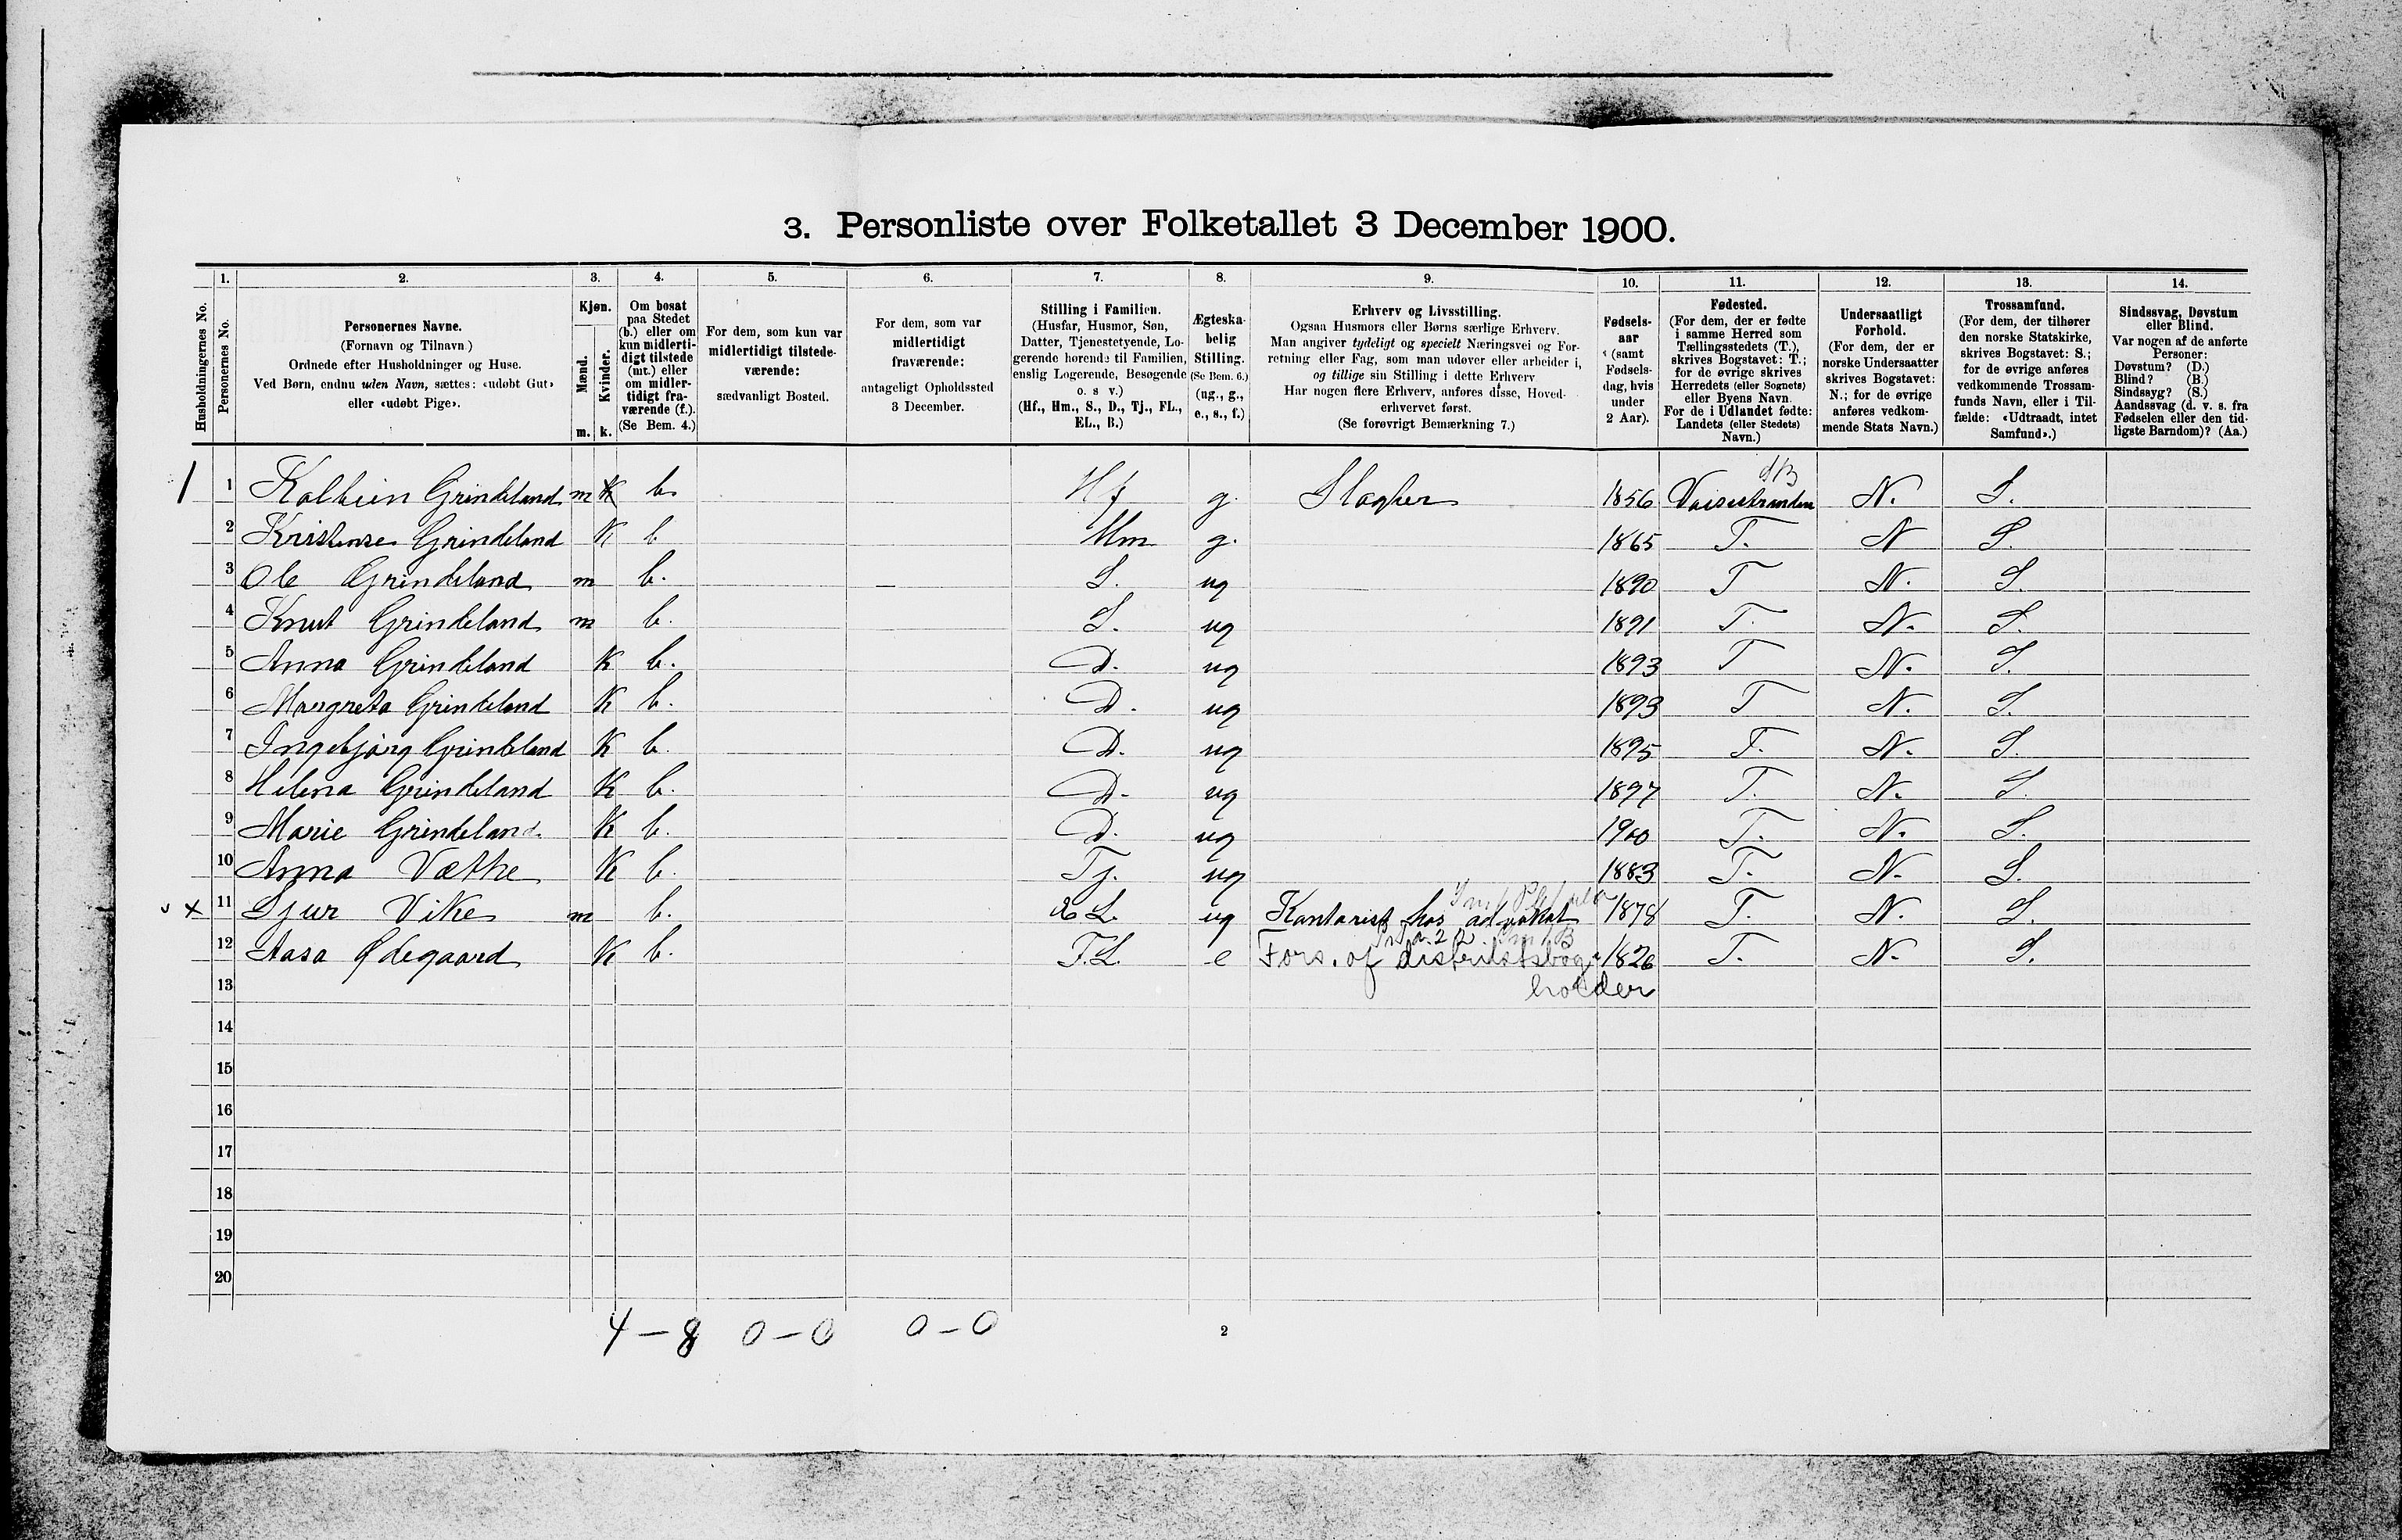 3. Personliste over Folketallet 3 December 1900.
Husholdningernes No.
1. Personernes No.
2. Personernes Navne.
(Fornavn og Tilnavn.)
Ordnede efter Husholdninger og Huse.
Ved Børn, endnu uden Navn, sættes: «udøbt Gut»
eller «udøbt Pige».
3. Kjøn.
Mænd. Kvinder.
m. k.
4. Om bosat
paa Stedet
(b.) eller om
kun midlerti-
digt tilstede
(mt.) eller
om midler-
tidigt fra-
værende (f.).
(Se Bem. 4.)
5. For dem, som kun var
midlertidigt tilstede-
værende:
sædvanligt Bosted.
6. For dem, som var
midlertidigt
fraværende:
antageligt Opholdssted
3 December.
7. Stilling i Familien.
(Husfar, Husmor, Søn,
Datter, Tjenestetyende, Lo-
gerende hørende til Familien,
enslig Logerende, Besøgende
o. s v.)
(Hf., Hm., S., D., Tj., FL.,
EL., B.)
8. Ægteska-
belig
Stilling.
(Se Bem. 6.)
(ug., g.,
e., s., f.)
9. Erhverv og Livsstilling.
Ogsaa Husmors eller Børns særlige Erhverv.
Man angiver tydeligt og specielt Næringsvei og For-
retning eller Fag, som man udøver eller arbeider i,
og tillige sin Stilling i dette Erhverv
Har nogen flere Erhverv, anføres disse, Hoved-
erhvervet først.
(Se forøvrigt Bemærkning 7.)
10. Fødsels-
aar
(samt
Fødsels-
dag, hvis
under
2 Aar).
11. Fødested.
(For dem, der er fødte
i samme Herred som
Tællingsstedets (T.),
skrives Bogstavet: T.;
for de øvrige skrives
Herredets (eller Sognets)
eller Byens Navn.
For de i Udlandet fødte:
Landets (eller Stedets)
Navn.)
12. Undersaatligt
Forhold.
(For dem, der er
norske Undersaatter
skrives Bogstavet:
N.; for de øvrige
anføres vedkom-
mende Stats Navn.)
13. Trossamfund.
(For dem, der tilhører
den norske Statskirke,
skrives Bogstavet: S.;
for de øvrige anføres
vedkommende Trossam-
funds Navn, eller i Til-
fælde: «Udtraadt, intet
Samfund».)
14. Sindssvag, Døvstum
eller Blind.
Var nogen af de anførte
Personer:
Døvstum? (D.)
Blind? (B.)
Sindssyg? (S.)
Aandssvag (d. v. s. fra
Fødselen eller den tid-
ligste Barndom)? (Aa.)
1 1 Kolbein Grindeland m K b. Hf g. Slagter 1856 N. S.
2 Kristense Grindeland K b Hm g. 1865 T. N S.
3 Ole Grindeland m b. – S. ug 1890 T N. S.
4 Knut Grindeland m b. S. ug 1891 T. N. S.
5 Anna Grindeland K b. D. ug 1893 T N. S.
6 Margreta Grindeland K b. D. ug 1893 T N. S.
7 Ingebjørg Grindeland K b. D. ug 1895 T. N. S.
8 Helena Grindeland K b. D. ug 1897 T. N. S.
9 Marie Grindeland K b. D. ug 1900 T. N. S.
10 Anna Væthe K b. Tj. ug 1883 T. N. S.
x 11 Sjur Vike m b. E L. ug Kontorist hos advokat 1878 T. N. S.
12 Aasa Ødegaard K b. F.L. e Fors. af distriktsbog- 1826 T. N. S.
13 holder
14
15
16
17
18
19
20
4 – 8 0 – 0 0 – 0
2